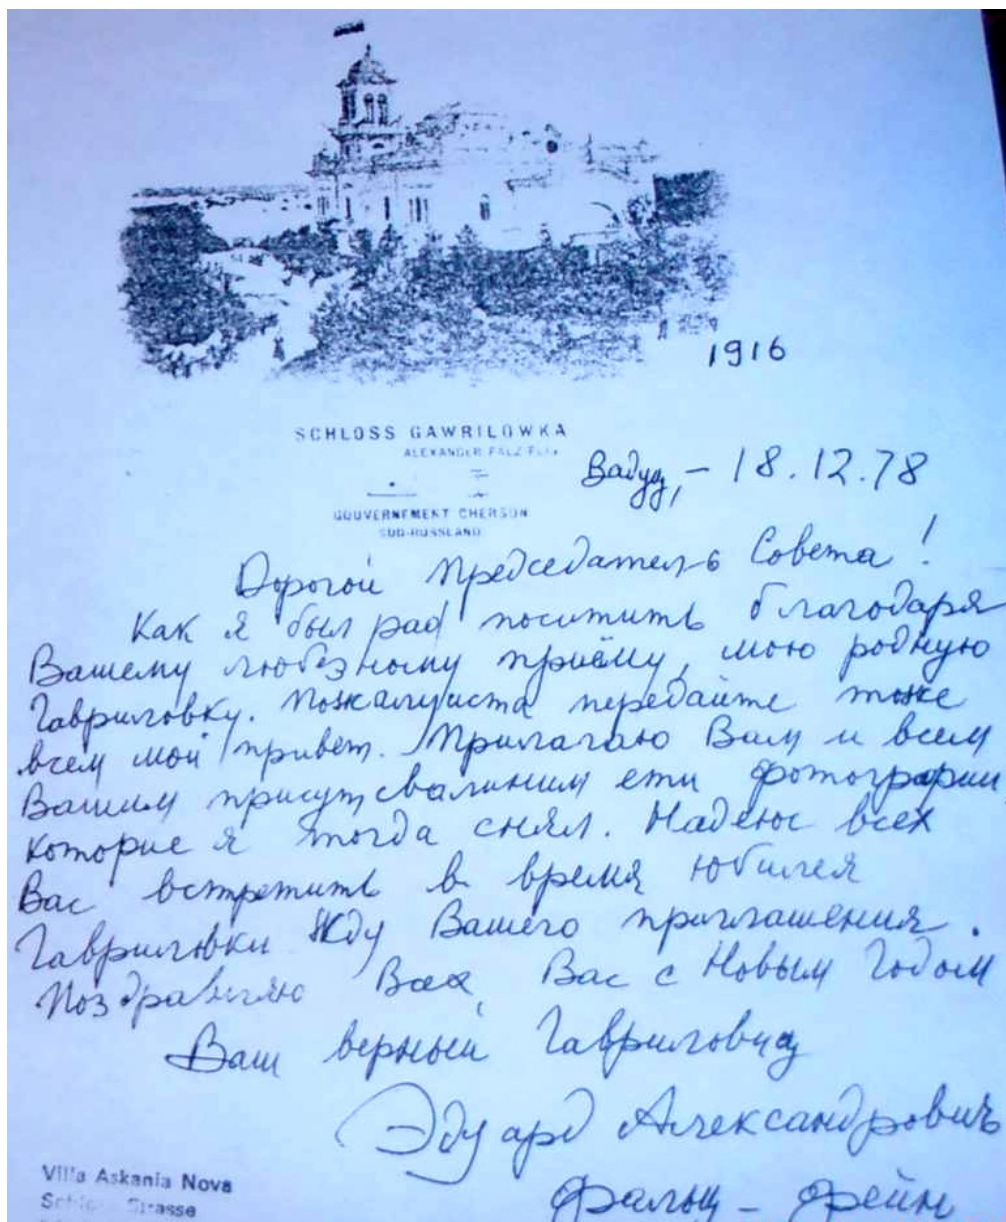 1916
SCHLOSS GAWRILOWKA
ALEXANDER FALZ-FEIN
Вадуц, - 18.12.78
GOUVERNEMENT CHERSON
SÜD-RUSSLAND
Дорогой Председатель Совета!
Как я был рад поситить благодаря
Вашему любезному приёму, мою родную
Гавриловку. Пожалуиста передайте тоже
всем мой привет. Прилагаю Вам и всем
Вашим ети фотографии
которие я тогда снял. Надеюс всех
Вас встретить в время юбилея
Гавриловки Жду Вашего приглашения.
Поздравляю Всех Вас с Новым Годом
Ваш верный Гавриловц
Эдуард Александровичъ
Фальц-Фейн
Villa Askania Nova
Schloss Strasse